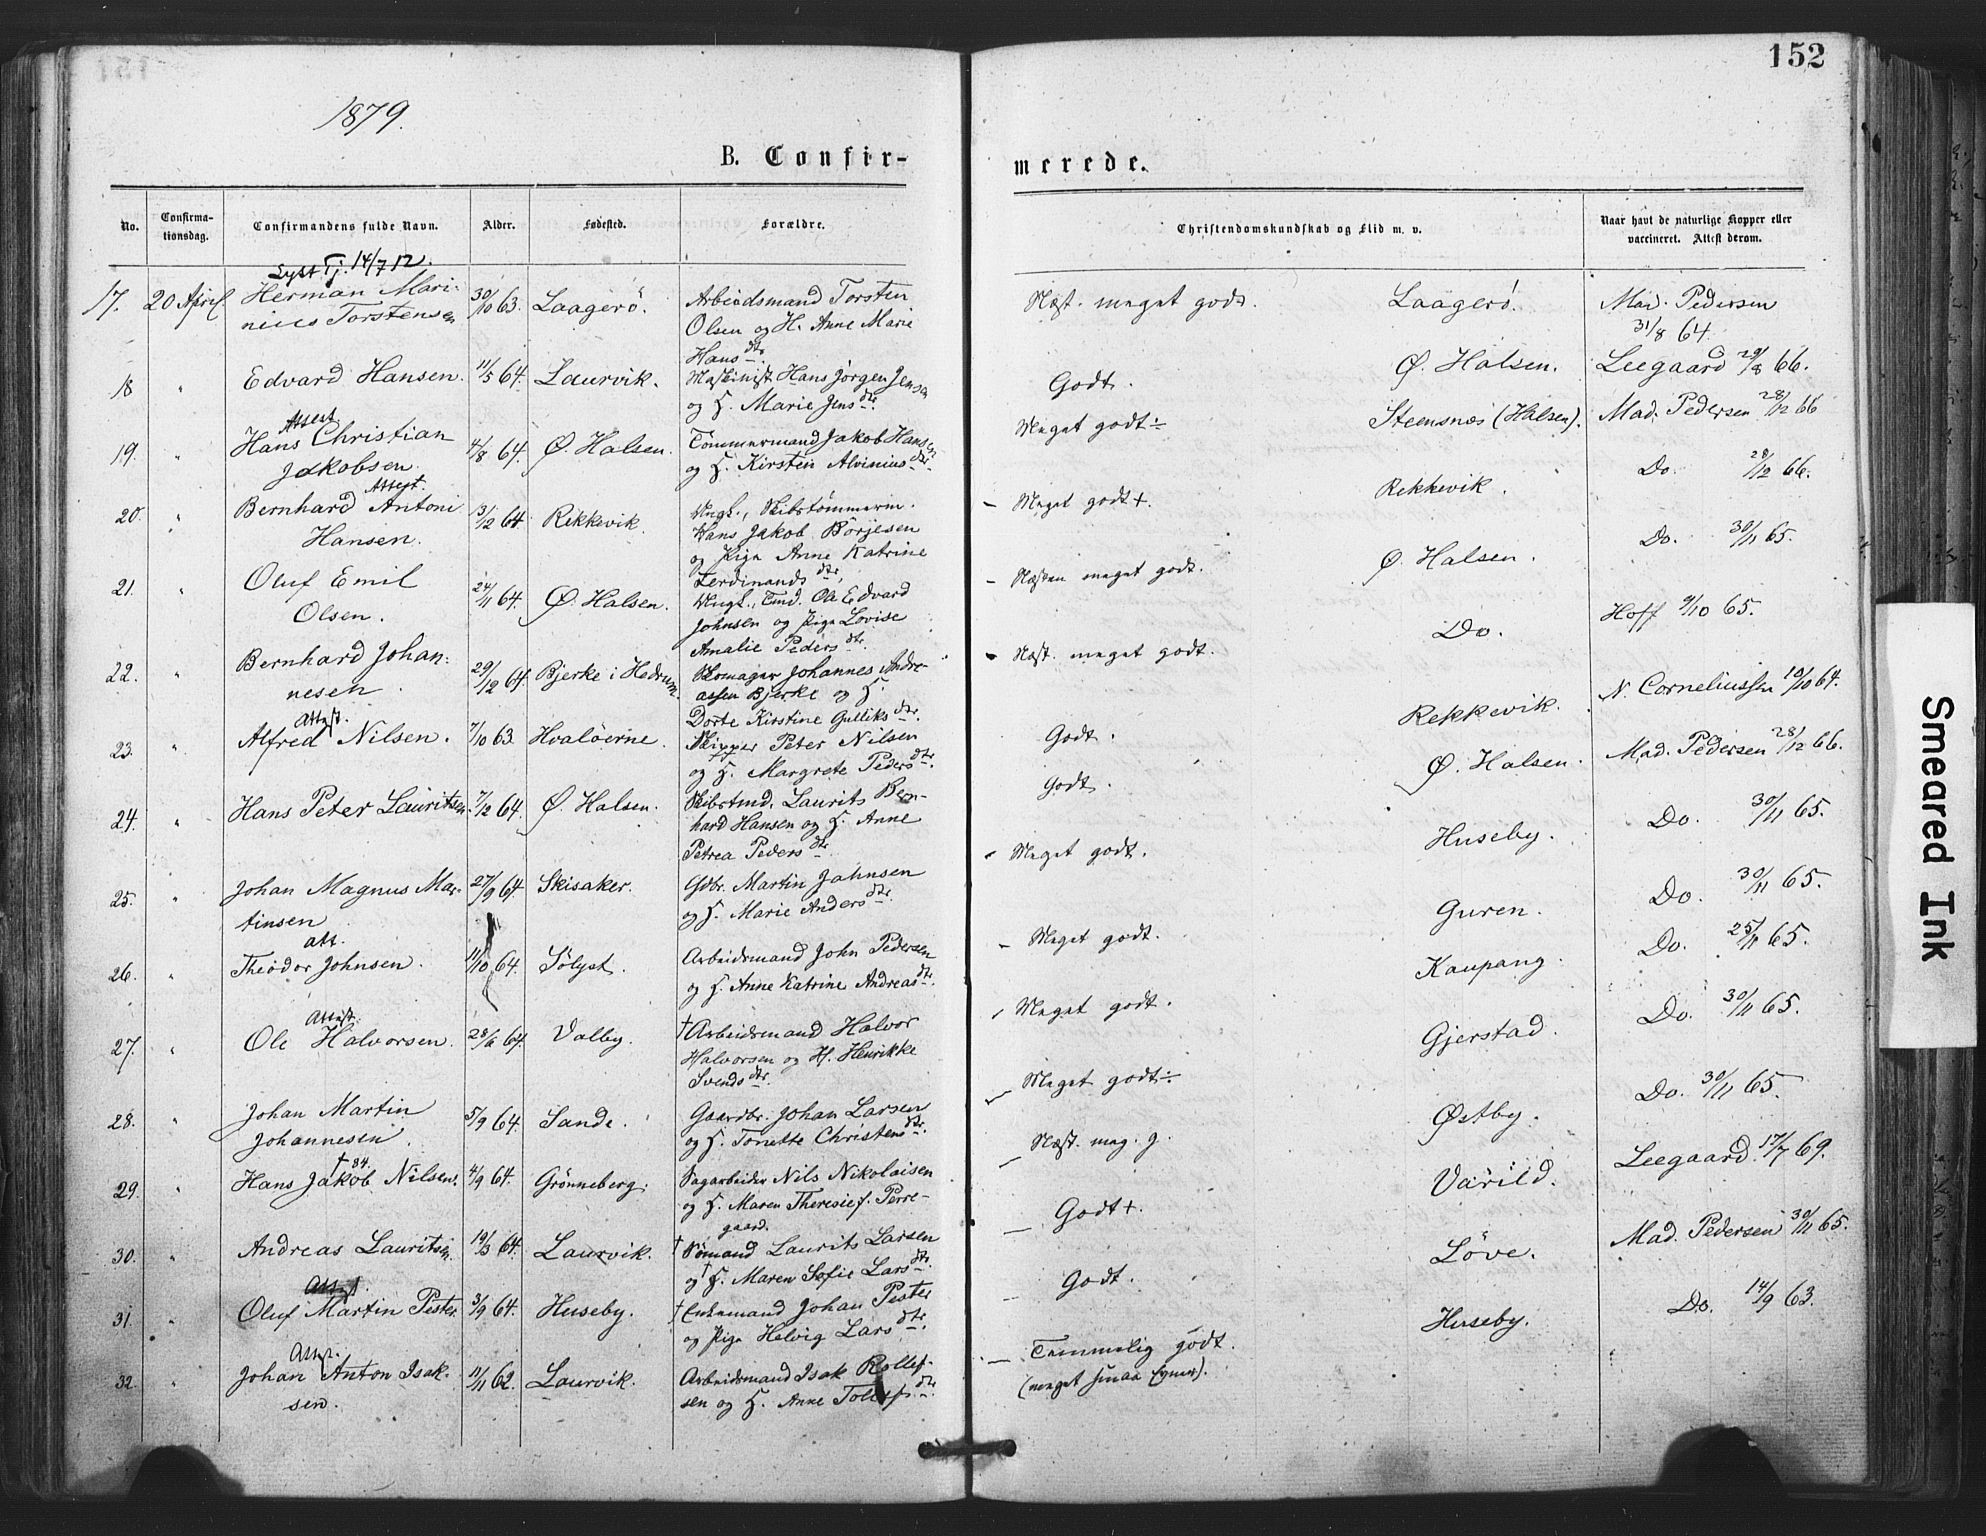 152
1879.
B. Confir-
merede.
No.
Confirma-
tionsdag.
Confirmandens fulde Navn.
Alder.
Fødested.
Forældre.
Christendomskundskab og Flid m. v.
Naar havt de naturlige Kopper eller
vaccineret. Attest derom.
Lyst Tj. 14/7 12.
17. 20 April Herman Mari- 30/10 63. Laagerö. Arbeidsmand Torsten Næst. meget godt. Laagerø. Mad. Pedersen
nius Torstensen Olsen og H. Anne Marie 31/8 64.
Hansdtr.
18 " Edvard Hansen. 11/5 64. Laurvik. Maskinist Hans Jørgen Jensen Godt. Ø. Halsen. Leegaard 29/8 66.
og H. Marie Jensdtr.
Attest
19. " Hans Christian 4/8 64. Ø. Halsen. Tömmermand Jakob Hansen Meget godt÷ Steensnæs (Halsen). Mad. Pedersen 28/12 66
Jakobsen. og H. Kirsten Alviniusdtr.
Attest.
20. " Bernhard Antoni 3/12 64 Rekkevik Ungk., Skibstömmerm. Meget godt+ Rekkevik. Do. 28/12 66.
Hansen. Hans Jakob Börjesen
og Pige Anne Katrine
Ferdinandsdtr.
21. " Oluf Emil 24/11 64. Ø. Halsen. Ungk., Tmd. Ole Edvard Næsten meget godt. Ø. Halsen. Do. 30/11 65.
Olsen. Johnsen og Pige Lovise
Amalie Pedersdtr.
22. " Bernhard Johan- 29/12 64 Bjerke i Hedrum. Skomager Johannes Andre- Næst. meget godt. Do. Hoff 9/10 65.
nesen. assen Bjerke og H.
Dorte Kirstine Gulliksdtr.
Attest.
23. " Alfred Nilsen. 7/10 63. Hvaløerne. Skipper Peter Nilsen Godt. Rekkevik. N. Corneliussen 10/10 64.
og H. Margrete Pedersdtr.
24. " Hans Peter Lauritsen. 7/12 64. Ø. Halsen. Skibstmd. Laurits Bern- Godt. Ø. Halsen. Mad. Pedersen 28/12 66.
hard Hansen og H. Anne
Petrea Pedersdtr.
25. " Johan Magnus Mar- 27/9 64. Skisaker. Gdbr. Martin Jahnsen Meget godt. Huseby. Do. 30/11 65.
tinsen og H. Marie Andersdtr.
att.
26. " Theodor Johnsen. 11/10 64. Sölyst. Arbeidsmand John Pedersen Meget godt. Guren. Do. 30/11 65.
og H. Anne Katrine Andreasdtr.
Kaupang. Do. 25/11 65.
Attest.
27. " Ole Halvorsen. 28/6 64. Valby. † Arbeidsmand Halvor Meget godt. Gjerstad. Do. 30/11 65.
Halvorsen og H. Henrikke
Svendsdtr.
28. " Johan Martin 5/9 64. Sande. Gaardbr. Johan Larsen Meget godt÷ Østby. Do. 30/11 65.
Johannesen. og H. Tonette Christensdtr.
† 84.
29. " Hans Jakob Nilsen. 4/9 64. Grönneberg. Sagarbeider Nils Nikolaisen Næst. meg. g. Värild. Leegaard. 17/7 69.
og H. Maren Theresie f. Perre-
gaard.
30. " Andreas Lauritsen. 19/3 64. Laurvik. † Sömand Laurits Larsen Godt+. Löve. Mad. Pedersen 30/11 65.
og † H. Maren Sofie Larsdtr.
Attest.
31. " Oluf Martin Pester 3/9 64. Huseby. † Enkemand Johan Pester Godt. Huseby. Do. 14/9 63.
og Pige Helvig Larsdtr.
Attest.
32. " Johan Anton Isak- 11/11 62. Laurvik. Arbeidsmand Isak Rollef- Temmelig godt.
sen. sen og H. Anne (meget smaa Evner).
Smeared Ink